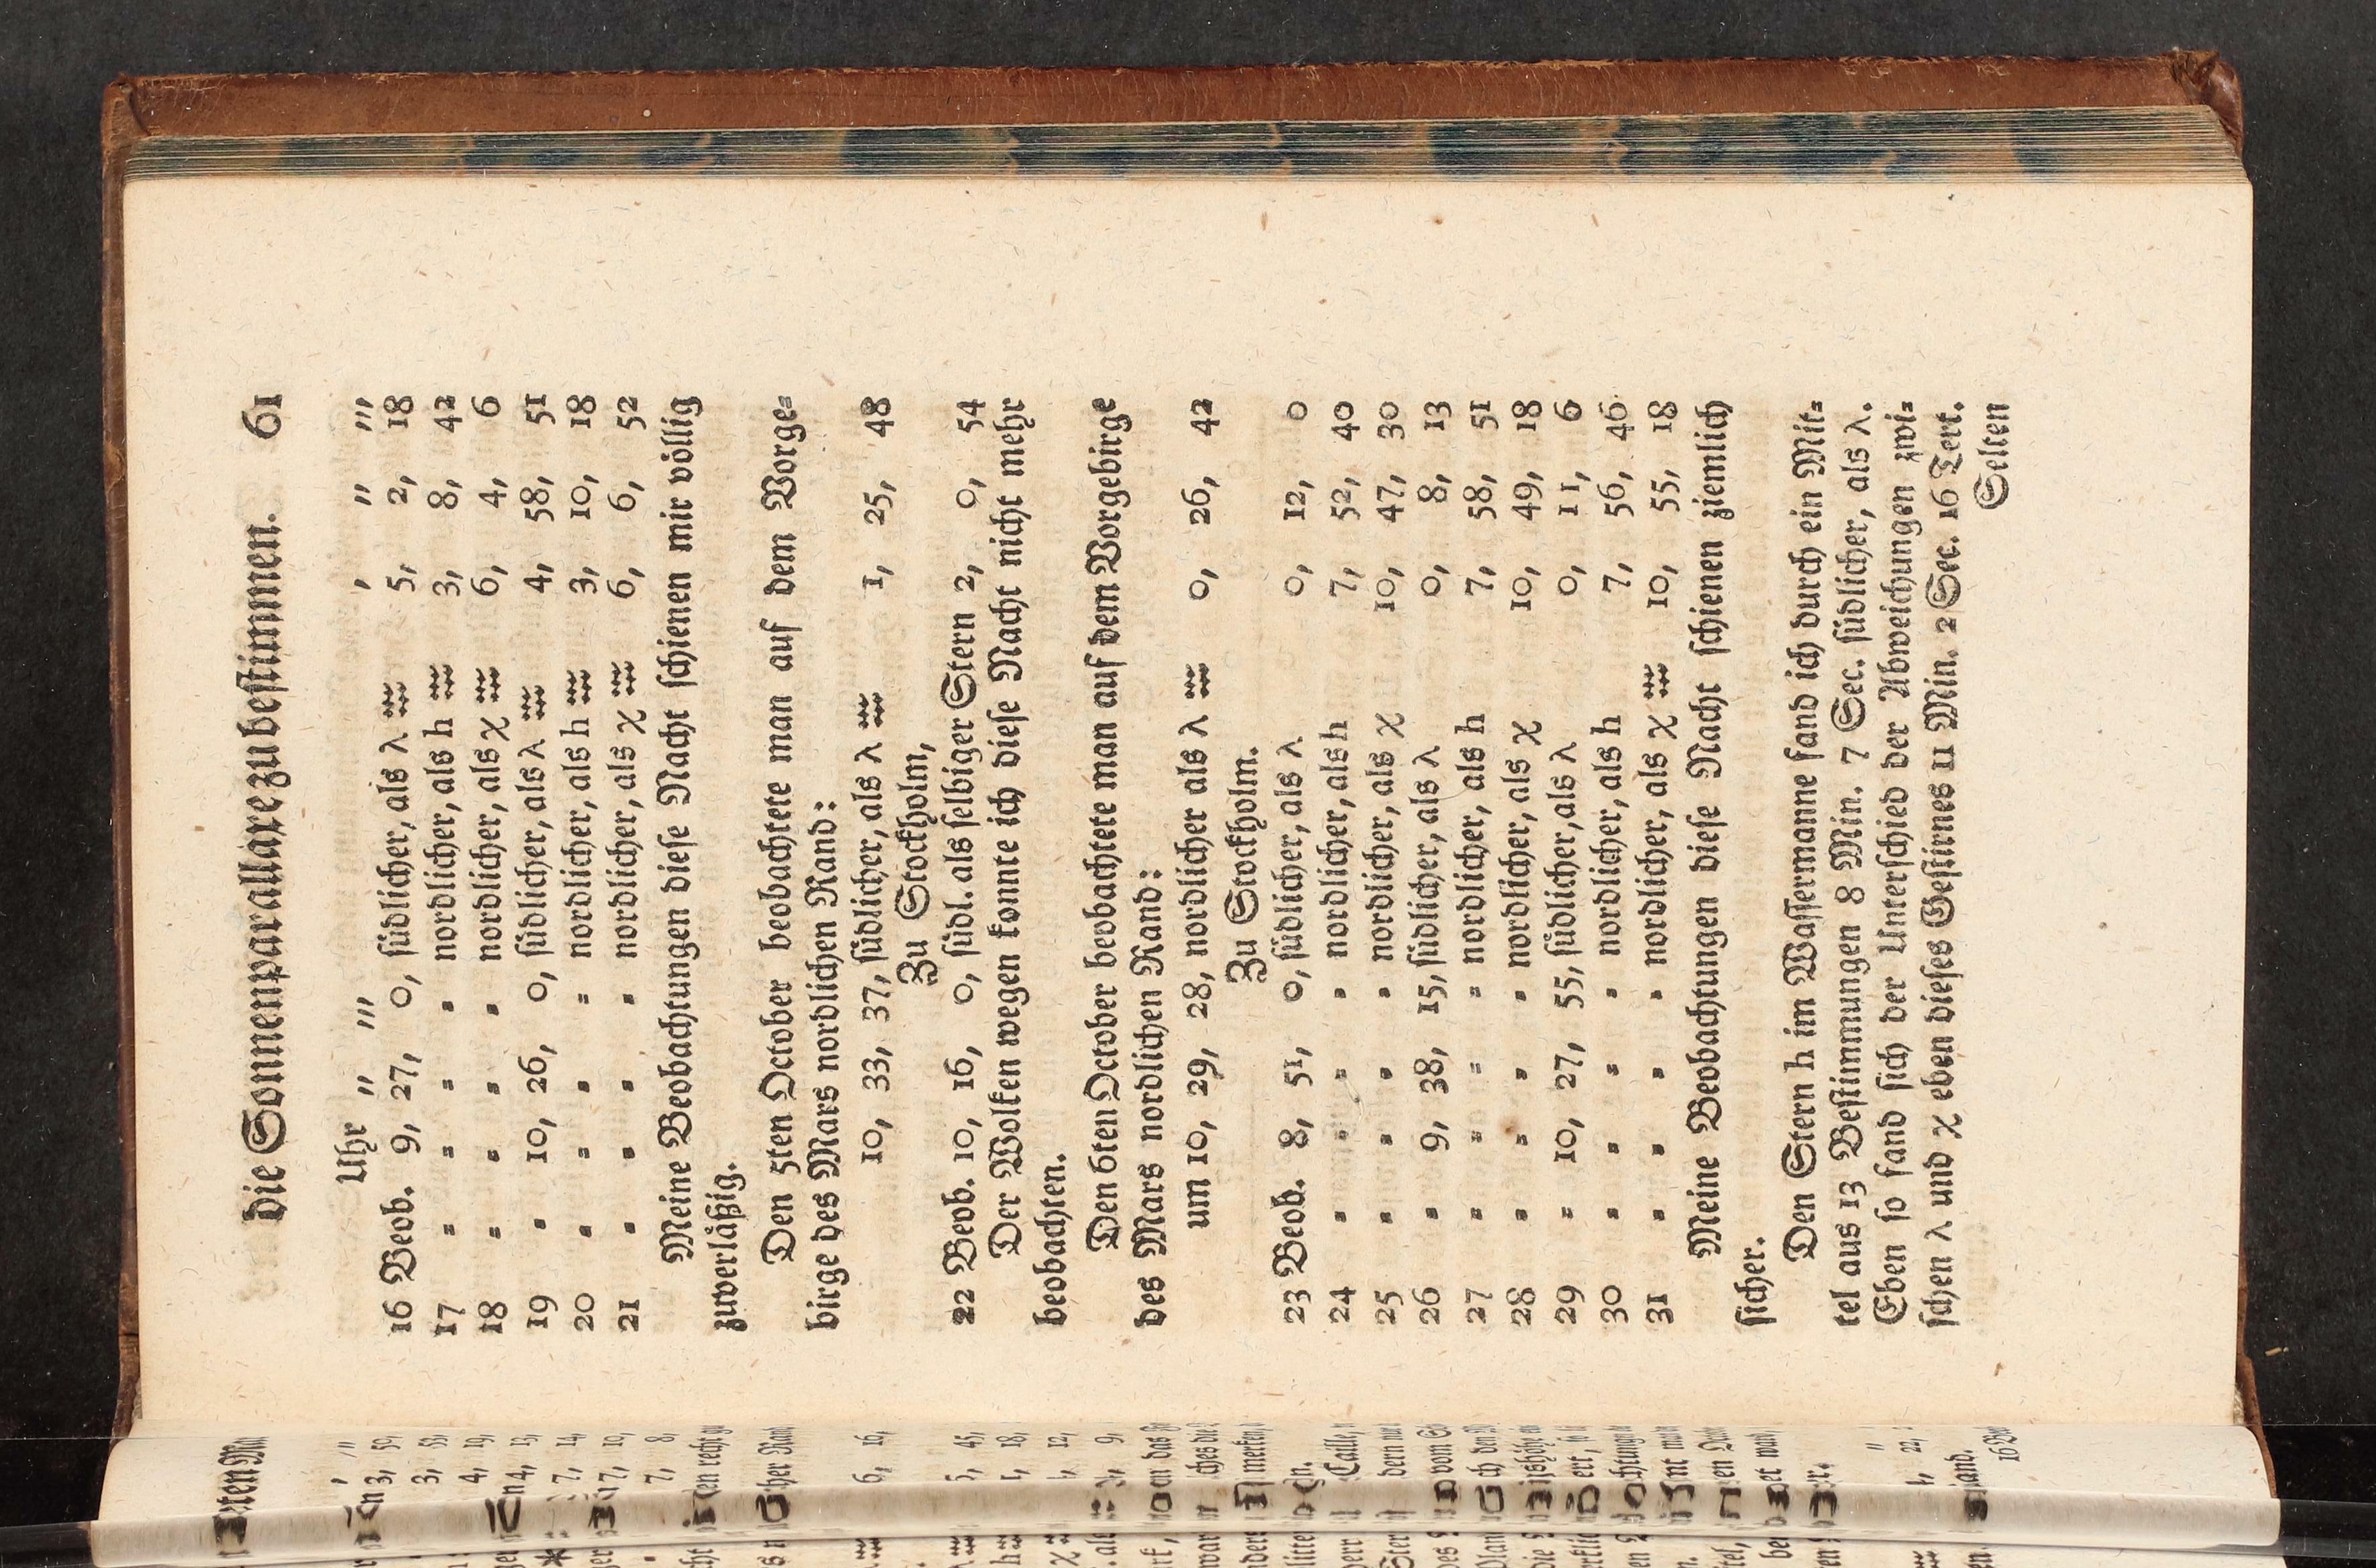 die Sonnenparallaxe zu bestimmen. 61
Uhr '' ''' ' '' '''
16 Beob. 9, 27, 0, südlicher, als λ ♒ 5, 2, 18
17 = = = = nordlicher, als h ♒ 3, 8, 42
18 = = = = nordlicher, als χ ♒ 6, 4, 6
19 = 10, 26, 0, südlicher, als λ ♒ 4, 58, 51
20 = = = = nordlicher, als h ♒ 3, 10, 18
21 = = = = nordlicher, als χ ♒ 6, 6, 52
Meine Beobachtungen diese Nacht schienen mir völlig
zuverläßig.
Den 5ten October beobachtete man auf dem Vorge=
birge des Mars nordlichen Rand:
10, 33, 37, südlicher, als λ ♒ 1, 25, 48
Zu Stockholm,
22 Beob. 10, 16, 0, südl. als selbiger Stern 2, 0, 54
Der Wolken wegen konnte ich diese Nacht nicht mehr
beobachten.
Den 6ten October beobachtete man auf dem Vorgebirge
des Mars nordlichen Rand:
um 10, 29, 28, nordlicher als λ ♒ 0, 26, 42
Zu Stockholm.
23 Beob. 8, 51, 0, südlicher, als λ 0, 12, 0
24 = = = = nordlicher, als h 7, 52, 40
25 = = = = nordlicher, als χ 10, 47, 30
26 = 9, 38, 15, südlicher, als λ 0, 8, 13
27 = = = = nordlicher, als h 7, 58, 51
28 = = = = nordlicher, als χ 10, 49, 18
29 = 10, 27, 55, südlicher, als λ 0, 11, 6
30 = = = = nordlicher, als h 7, 56, 46
31 = = = = nordlicher, als χ ♒ 10, 55, 18
Meine Beobachtungen diese Nacht schienen ziemlich
sicher.
Den Stern h im Wassermanne fand ich durch ein Mit=
tel aus 13 Bestimmungen 8 Min. 7 Sec. südlicher, als λ.
Eben so fand sich der Unterschied der Abweichungen zwi=
schen λ und χ eben dieses Gestirnes 11 Min. 2 Sec. 16 Tert.
Selten